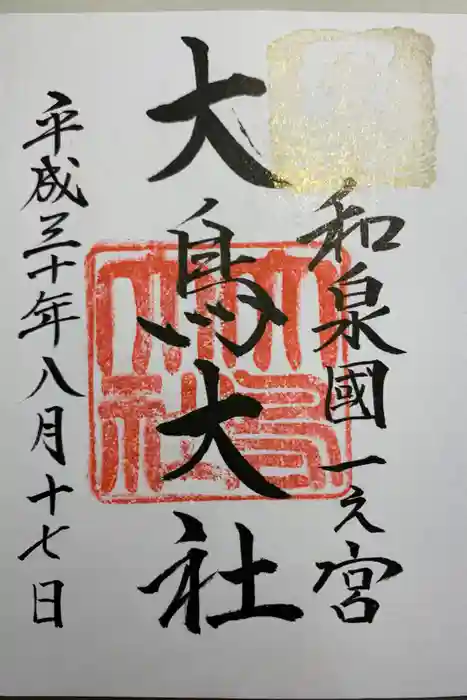 和泉國一之宮
大鳥大社
平成三十年八月十七日
大鳥大社